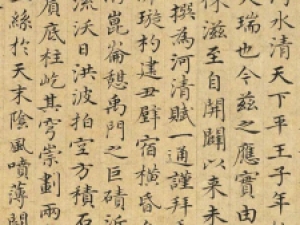 水清天下平王子年
大瑞也今茲之應實由
保滋至自開闢以來未
撰為河清賦一通謹拜
璇杓建丑壁宿橫昏
崑崙憩禹門之巨磧近
流沃日洪波拍空方積石
質底柱屹其穹崇劃兩
絲於天末陰風噴薄開